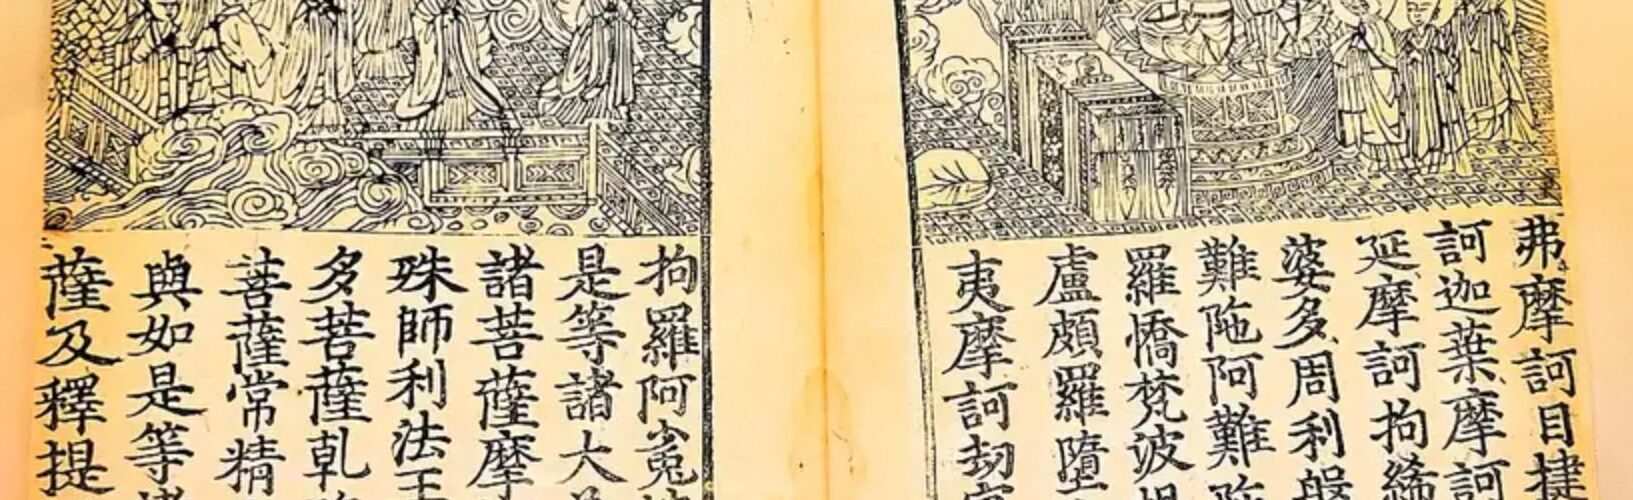 弗摩訶目揵
訶迦葉摩訶
延摩訶拘絺
婆多周利槃
難陁阿難陁
羅憍梵波提
盧頗羅墮
夷摩訶劫賓
拘羅阿㝹
是等諸大
諸菩薩摩
殊師利法王
多菩薩乹
菩薩常精
與如是等諸
薩及釋提